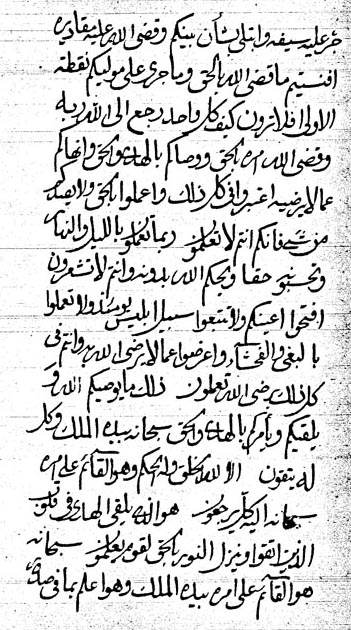 خر عليه سيفه وابتلى بشأن بينكم وقضى الله عليه بقادره
افنسيتم ما قضى الله بالحق وما جرى على موليكم نقطة
الاولى افلا ترون كيف كل واحد رجع الى الله ربه
وقضى الله امره بالحق ووصاكم بالهدى والحق وانهاكم
عما لا يرضيه اعتبروا في كل ذلك واعملوا بالحق ولا يصدكم
من شئ فانكم انتم لا تعلمون ربما تعملون بالليل والنهار
وتحسبونه حقا ويحكم الله بدونه وانتم لا تشعرون
افتحوا اعينكم ولا تتبعوا سبيل ابليس ولا تعملوا
بالبغي والفحشاء واعرضوا عما لا يرضى الله به وانتم في
كل ذلك رضى الله تعملون ذلك ما يوصيكم الله و
يلقيكم ويأمركم بالهدى والحق سبحانه بيده الملك وكل
له يتقون الا له الخلق وله الحكم وهو القائم على امره
سبحانه اليه كل يرجعون هو الذي يلقى الهدى في قلوب
الذين اتقوا وينزل النور بالحق لقوم يعلمون سبحانه
هو القائم على امره بيده الملك وهو اعلم بما في صدوركم